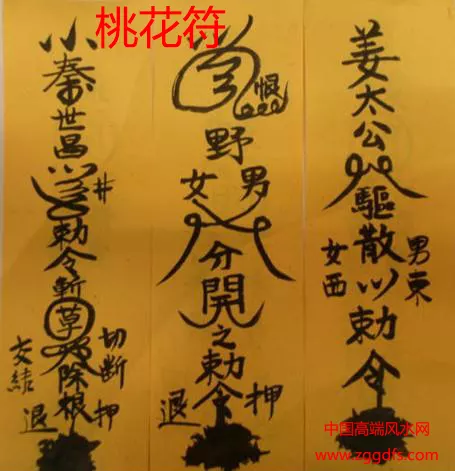 桃花符
姜太公驅散勅令
男東
女西
恨
野
男
女
分開之勅令
押
退
小秦世昌
井
勅令斬草除根
切断
押
交結
退
中国高端风水网
www.zggdfs.com